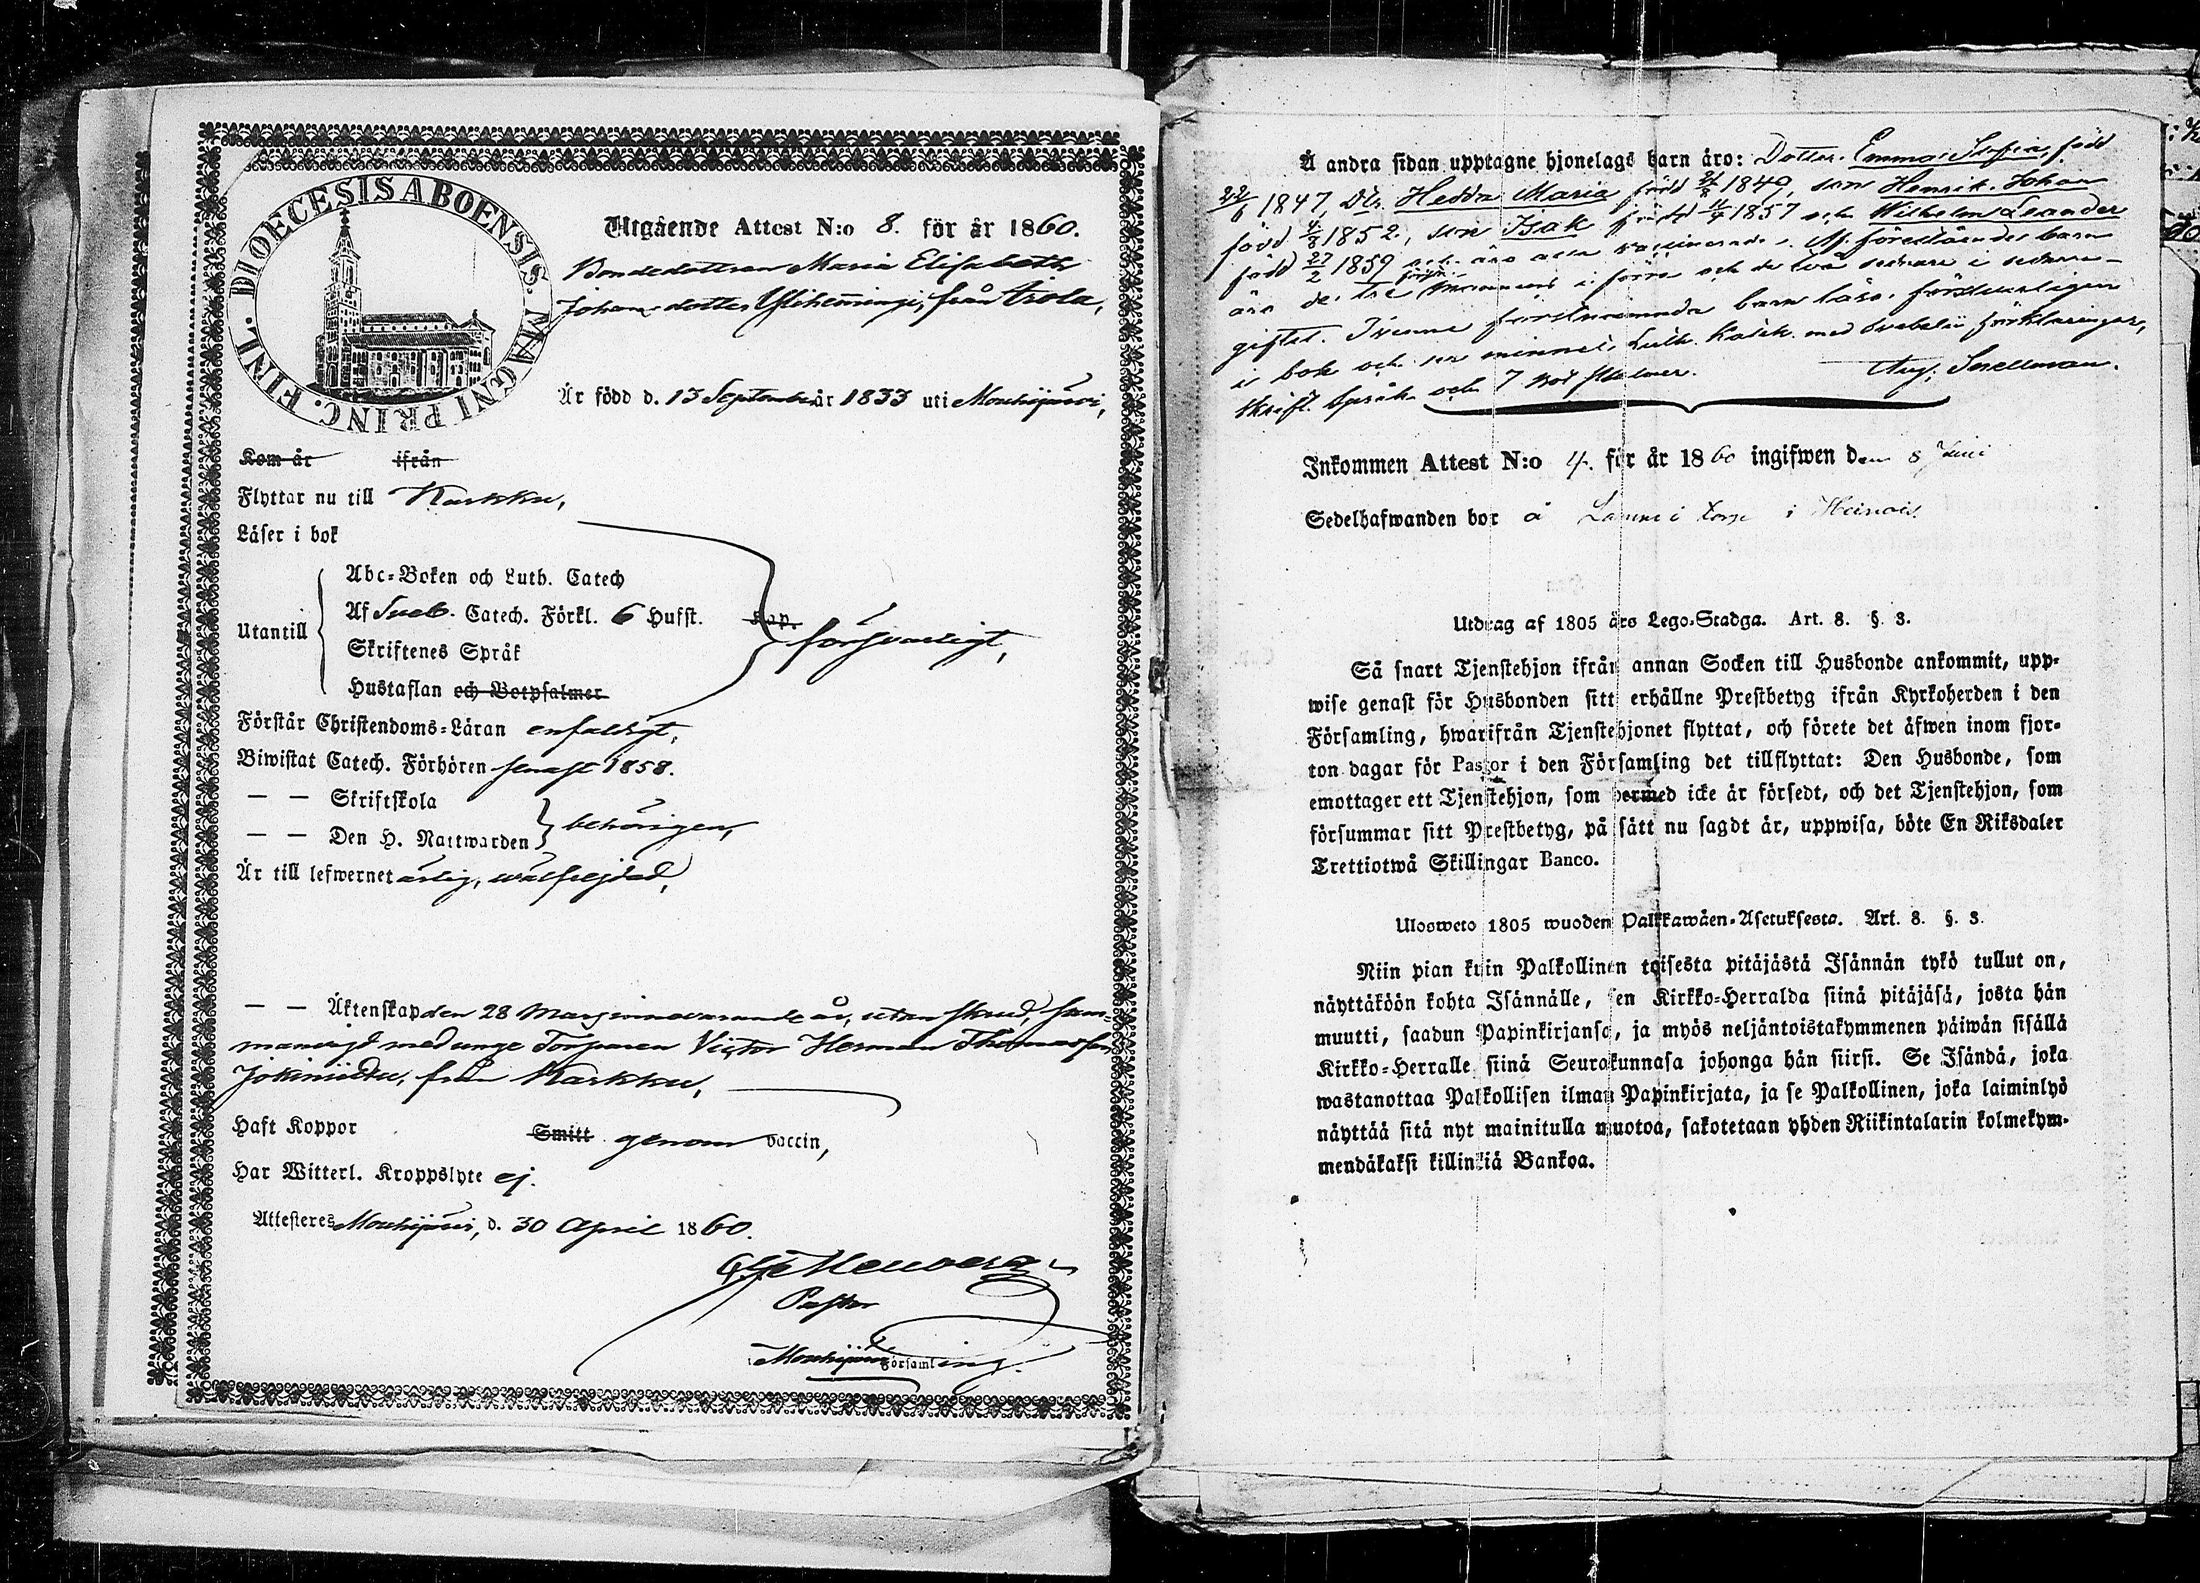 DIOECESIS ABOENSIS. MAGNI PRINC. FINL.
Utgående Attest N:o 8. för år 1860.
Bondedottren Maria Elisabeth
Johansdotter Ylihenningi, från
Är född d. 13 September år 1833 uti Mouhijärvi,
Kom år ifrån
Flyttar nu till Karkku,
Läser i bok
Abc-Boken och Luth. Catech
Utantill
Af Sveb. Catech. Förkl. 6 Hufst. Kap.
försvarligt,
Skriftenes Språk
Hustaflan och Botpsalmer
Förstår Christendoms-Läran enfaldigt,
Biwistat Catech. Förhören senast 1858.
— — Skriftskola
— — Den H. Nattwarden
behörigen,
Är till lefwernet ärlig, välfrejdad,
— — Äktenskap den 28 Mars innevarande år, utan skrud, sam-
manvigd med unge Torparen Victor Herman Thomasson
Jokiniitu, från Karkku,
Haft Koppor Smitt genom vaccin,
Har Witterl. Kroppslyte ej.
Attesteres Mouhijärvi, d. 30 April 1860.
Pastor
Mouhijärvi Församling.
Å andra sidan upptagne hjonelags barn äro: Dotter Emma Sofia, född
22/6 1847, Dtr. Hedda Maria född 1849, son Henrik Johan
född 1852, son Isak född 1857 och Wilhelm Leander
född 27/2 1859 och äro alla vaccinerade. Af föreståendes barn
äro de tre förra mannens i förra och de två sednare i sednare
giftet. Tvenne förstnämnda barn läsa försvarligen
i bok och ur minnet Luth. Katek. med Svebelii förklaringar,
Skrift. Språk och 7 bot psalmer. Aug. Snellman.
Inkommen Attest N:o 4. för år 1860 ingifwen den 8 Juni
Sedelhafwanden bor å torp i
Utdrag af 1805 års Lego-Stadga. Art. 8. §. 3.
Så snart Tjenstehjon ifrån annan Socken till Husbonde ankommit, upp-
wise genast för Husbonden sitt erhållne Prestbetyg ifrån Kyrkoherden i den
Församling, hwarifrån Tjenstehjonet flyttat, och förete det äfwen inom fjor-
ton dagar för Pastor i den Församling det tillflyttat: Den Husbonde, som
emottager ett Tjenstehjon, som dermed icke är försedt, och det Tjenstehjon, som
försummar sitt Prestbetyg, på sätt nu sagdt är, uppwisa, böte En Riksdaler
Trettiotwå Skillingar Banco.
Ulosweto 1805 wuoden Palkkawäen-Asetuksesta. Art. 8. §. 3.
Niin pian kuin Palkollinen toisesta pitäjästä Isännän tykö tullut on,
näyttäköön kohta Isännälle, sen Kirkko-Herralda siinä pitäjäsä, josta hän
muutti, saadun Papinkirjansa, ja myös neljäntoistakymmenen päiwän sisällä
Kirkko-Herralle siinä Seurakunnasa johonga hän siirsi. Se Isändä, joka
wastanottaa Palkollisen ilman Papinkirjata, ja se Palkollinen, joka laiminlyö
näyttää sitä nyt mainitulla muotoa, sakotetaan yhden Riikintalarin kolmekym-
mendäkaksi killinkiä Bankoa.